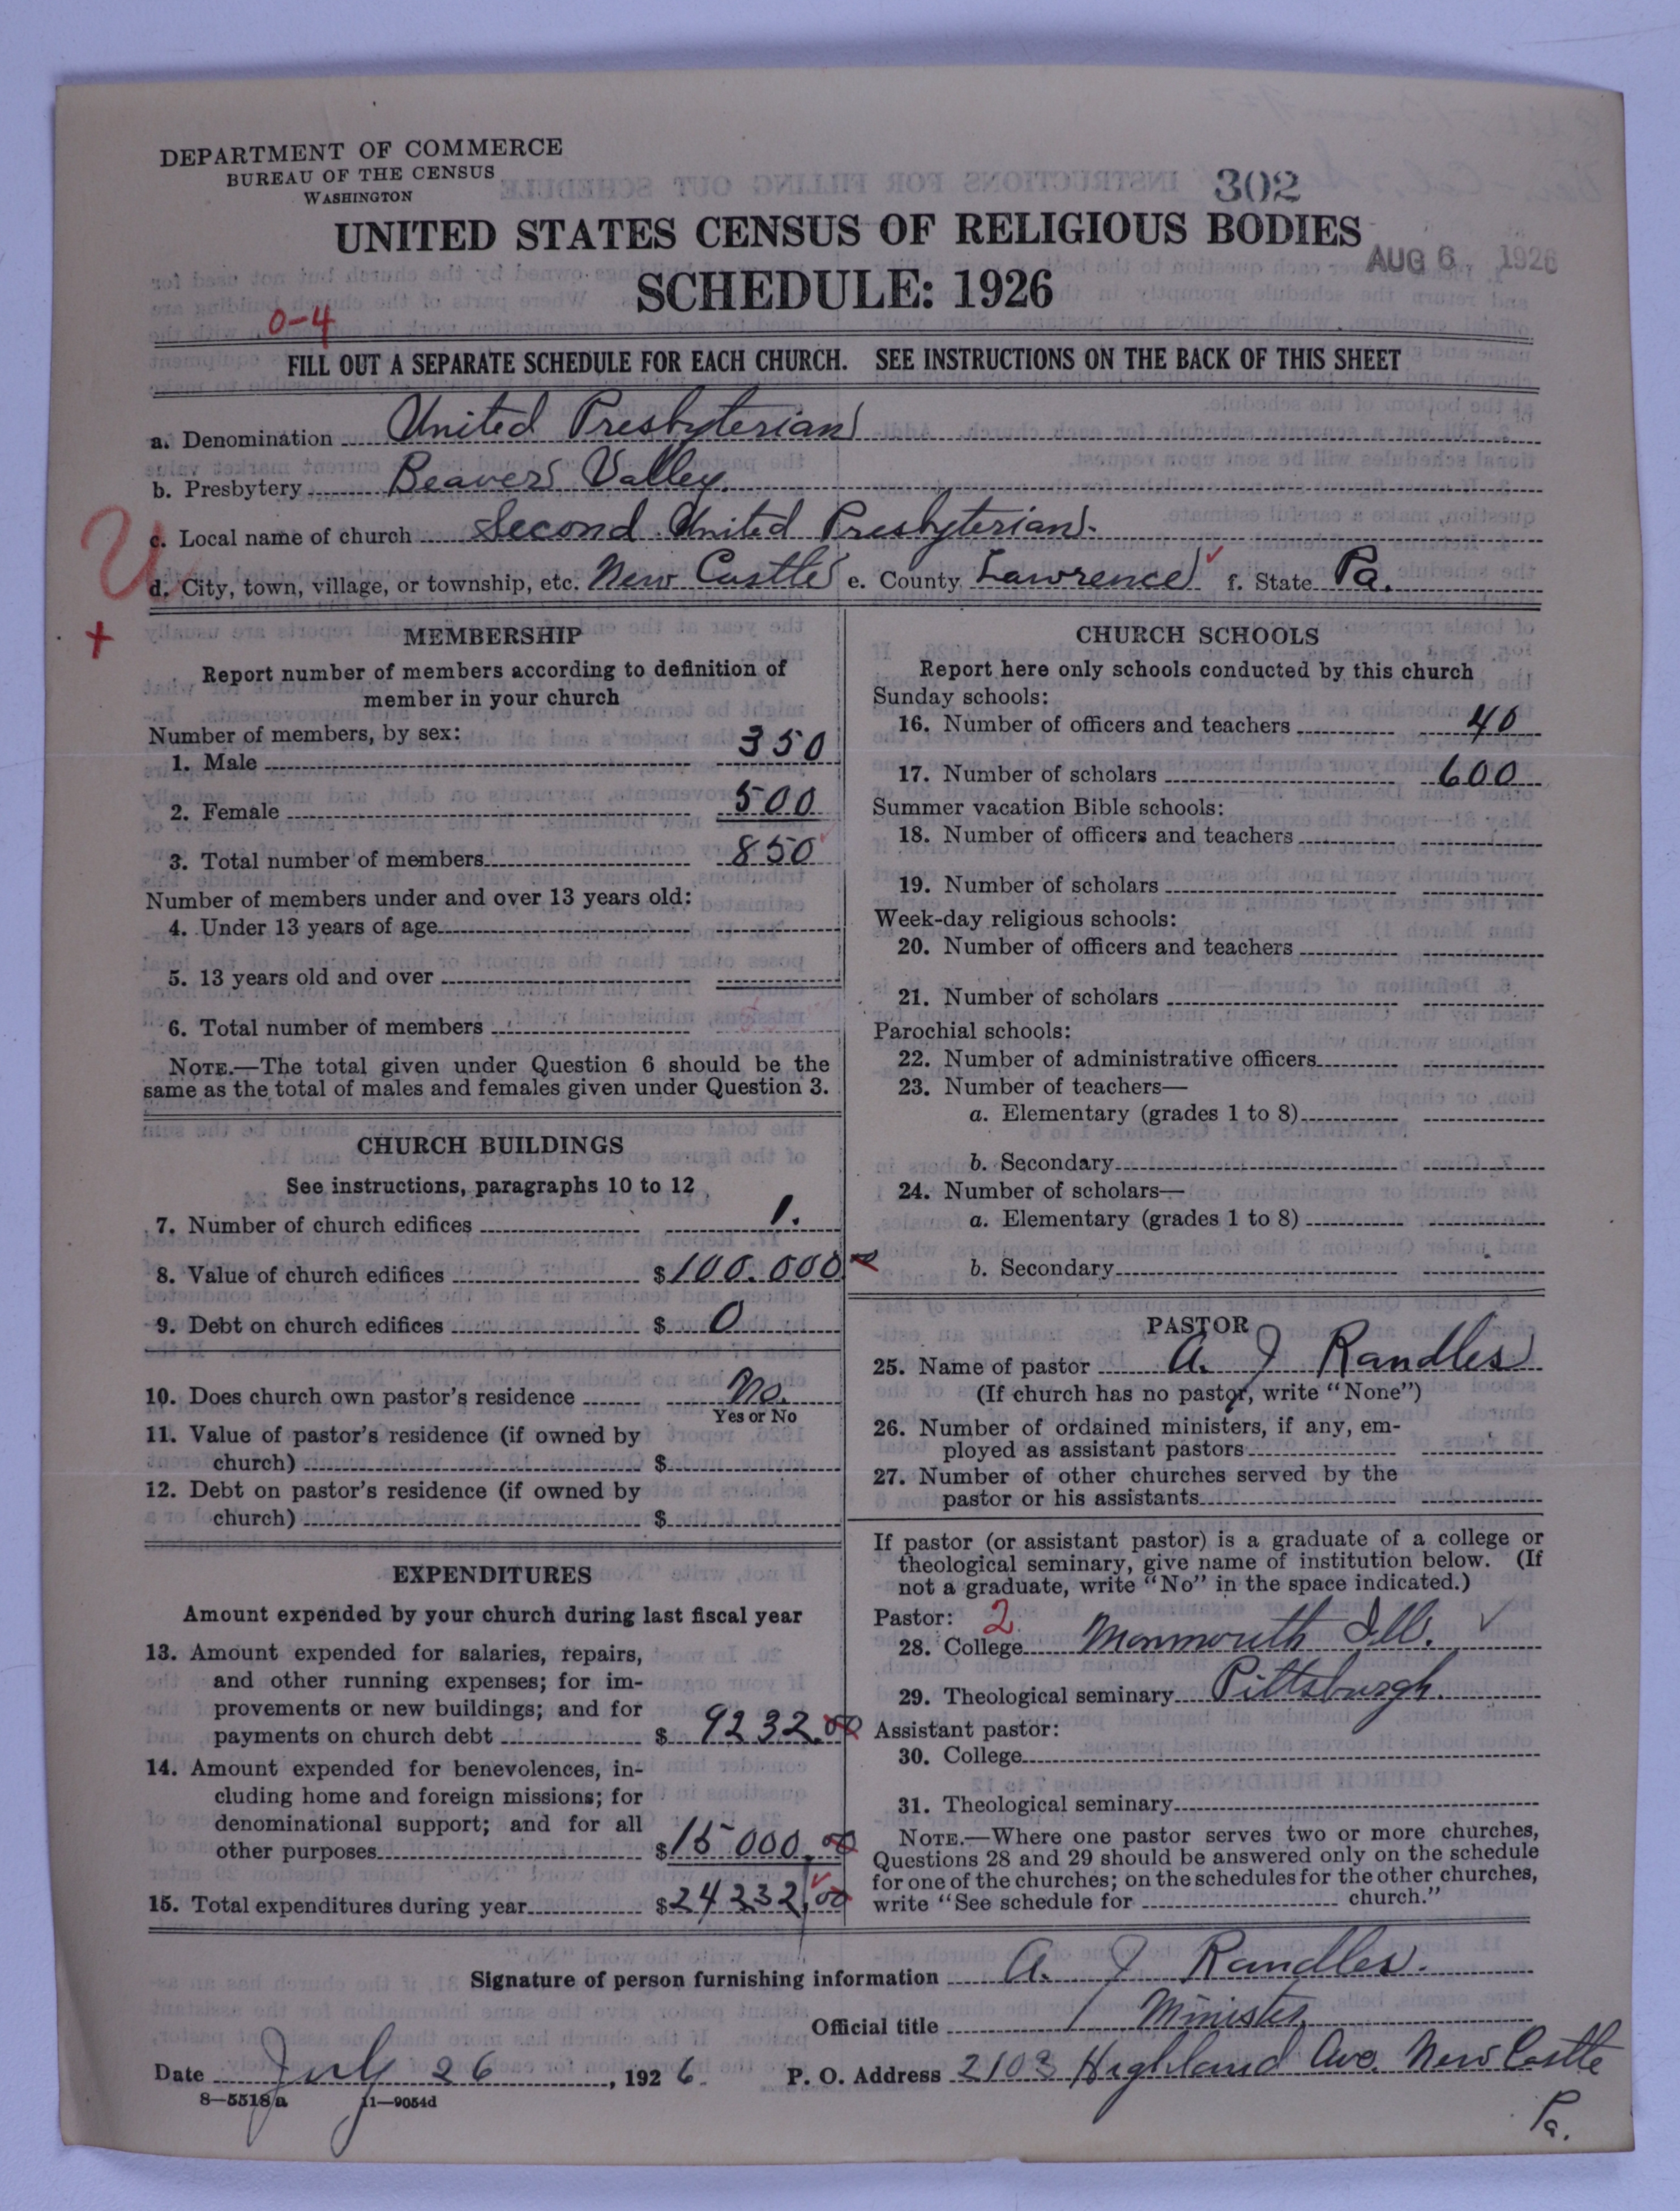 DEPARTMENT OF COMMERCE
BUREAU OF THE CENSUS
WASHINGTON
302
UNITED STATES CENSUS OF RELIGIOUS BODIES
AUG 6 1926
SCHEDULE: 1926
0-4
FILL OUT A SEPARATE SCHEDULE FOR EACH CHURCH. SEE INSTRUCTIONS ON THE BACK OF THIS SHEET
a. Denomination United Presbyterian
b. Presbytery Beaver Valley.
c. Local name of church Second United Presbyterian.
d. City, town, village, or township, etc. New Castle e. County Lawrence f. State Pa.
U
+
MEMBERSHIP
Report number of members according to definition of
member in your church
Number of members, by sex:
1. Male 350
2. Female 500
3. Total number of members 850
Number of members under and over 13 years old:
4. Under 13 years of age
5. 13 years old and over
6. Total number of members
NOTE.—The total given under Question 6 should be the
same as the total of males and females given under Question 3.
CHURCH BUILDINGS
See instructions, paragraphs 10 to 12
7. Number of church edifices 1.
8. Value of church edifices $100.000
9. Debt on church edifices $ 0
10. Does church own pastor's residence No.
Yes or No
11. Value of pastor's residence (if owned by
church) $
12. Debt on pastor's residence (if owned by
church) $
EXPENDITURES
Amount expended by your church during last fiscal year
13. Amount expended for salaries, repairs,
and other running expenses; for im-
provements or new buildings; and for
payments on church debt $ 9232.00
14. Amount expended for benevolences, in-
cluding home and foreign missions; for
denominational support; and for all
other purposes $15000.00
15. Total expenditures during year $24232.00
CHURCH SCHOOLS
Report here only schools conducted by this church
Sunday schools:
16. Number of officers and teachers 40
17. Number of scholars 600
Summer vacation Bible schools:
18. Number of officers and teachers
19. Number of scholars
Week-day religious schools:
20. Number of officers and teachers
21. Number of scholars
Parochial schools:
22. Number of administrative officers
23. Number of teachers—
a. Elementary (grades 1 to 8)
b. Secondary
24. Number of scholars—
a. Elementary (grades 1 to 8)
b. Secondary
PASTOR
25. Name of pastor A. J Randles
(If church has no pastor, write "None")
26. Number of ordained ministers, if any, em-
ployed as assistant pastors
27. Number of other churches served by the
pastor or his assistants
If pastor (or assistant pastor) is a graduate of a college or
theological seminary, give name of institution below. (If
not a graduate, write "No" in the space indicated.)
Pastor: 2
28. College Monmouth Ill. ✓
29. Theological seminary Pittsburgh.
Assistant pastor:
30. College
31. Theological seminary
NOTE.—Where one pastor serves two or more churches,
Questions 28 and 29 should be answered only on the schedule
for one of the churches; on the schedules for the other churches,
write "See schedule for church."
Signature of person furnishing information A. J Randles.
Official title Minister
Date July 26, 1926. P. O. Address 2103 Highland Ave. New Castle
Pa.
8—5518 a 11—9054d